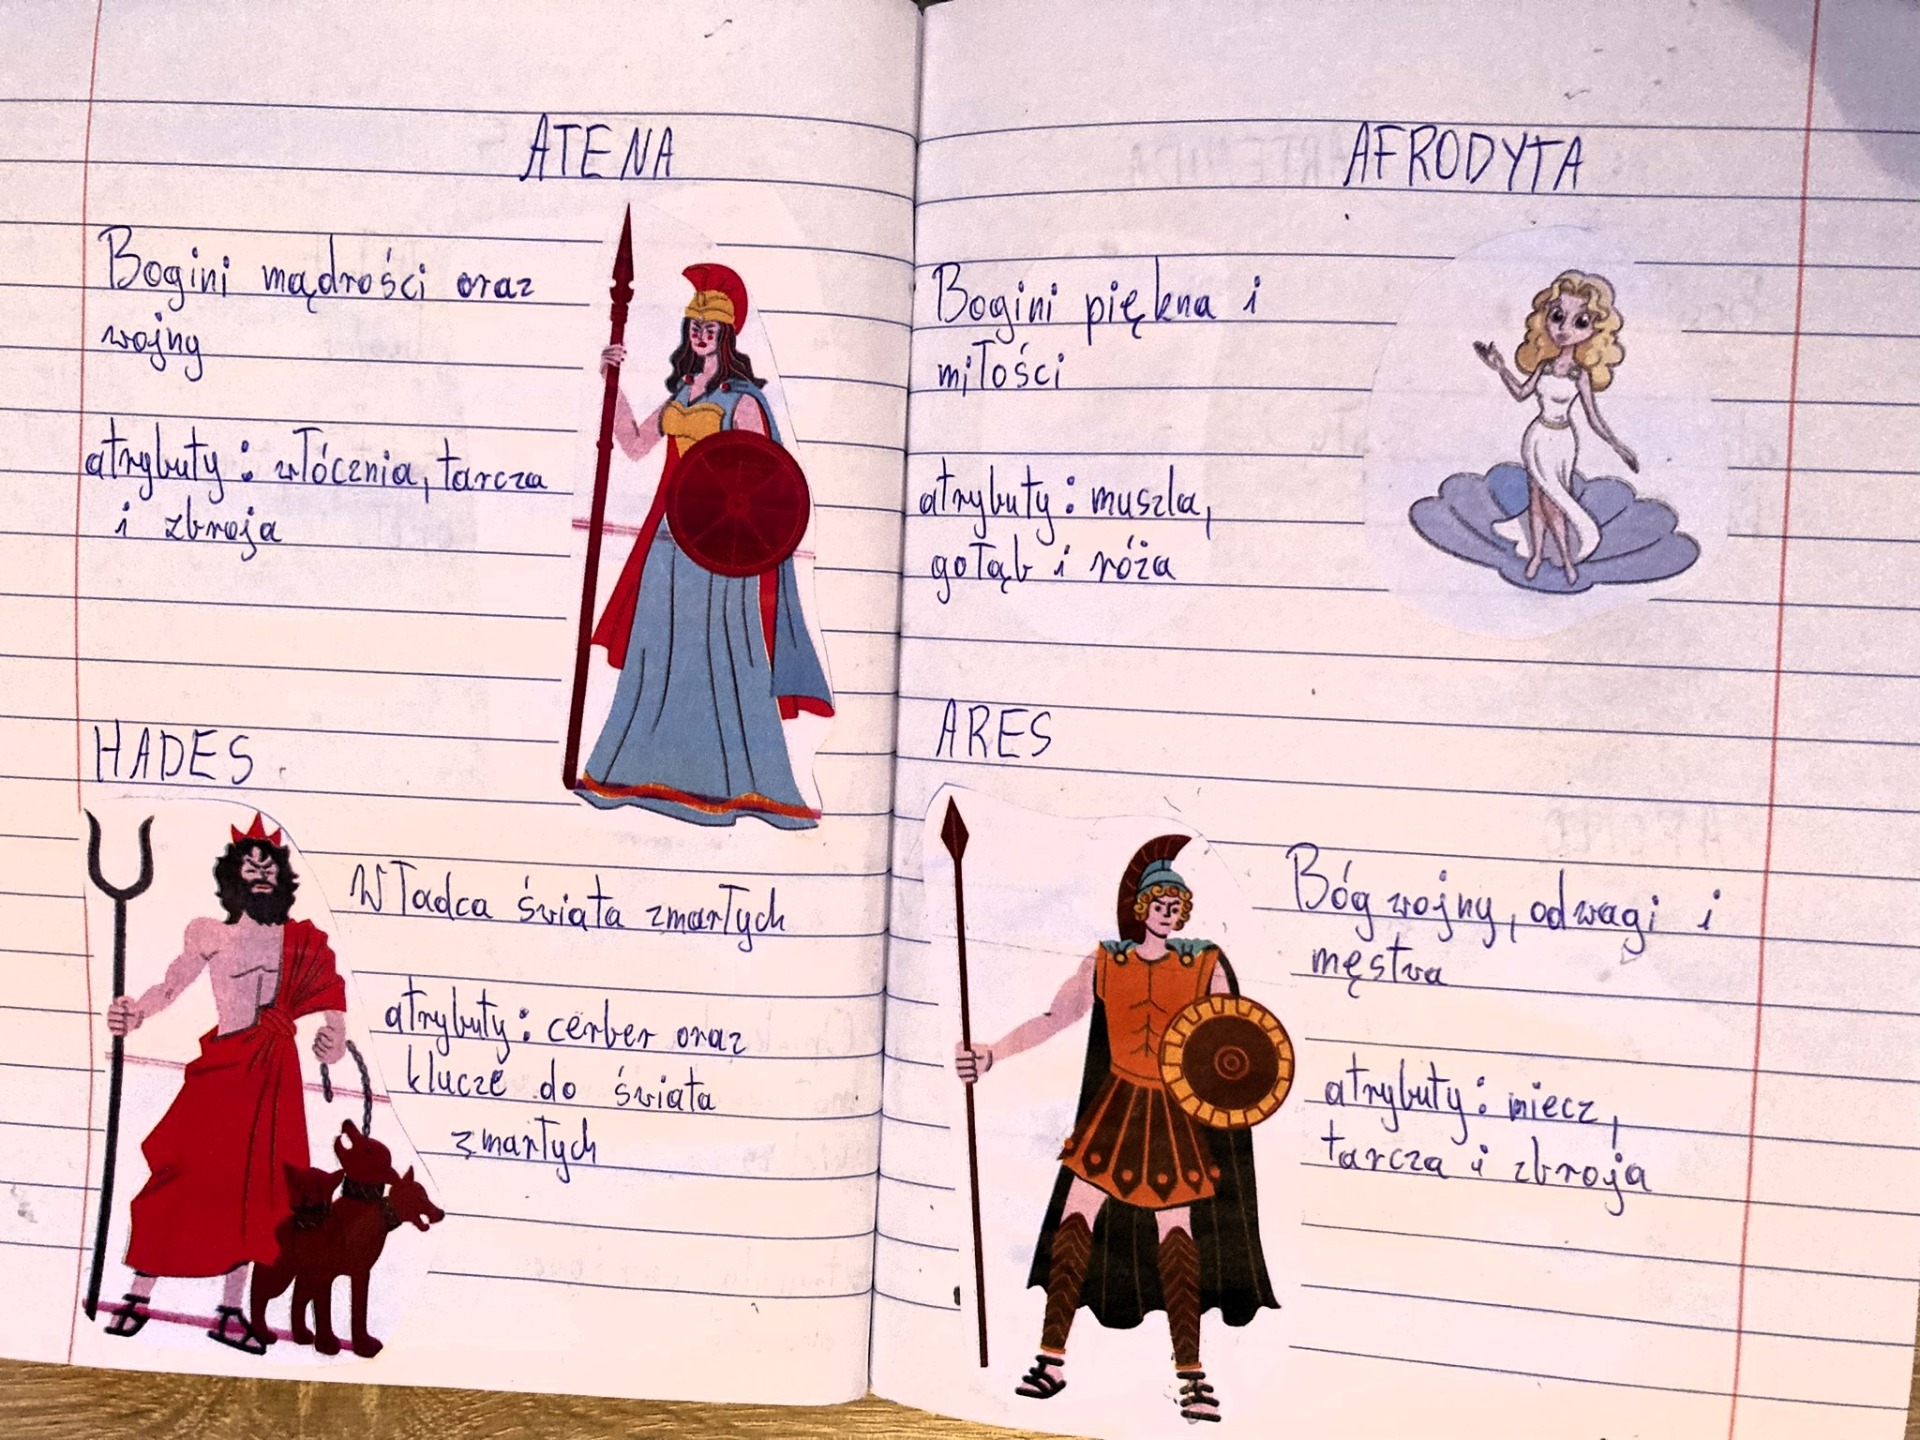 ATENA
Bogini mądrości oraz
wojny
atrybuty: włócznia, tarcza
i zbroja
HADES
Władca świata zmarłych
atrybuty: cerber oraz
klucze do świata
zmarłych
AFRODYTA
Bogini piękna i
miłości
atrybuty: muszla,
gołąb i róża
ARES
Bóg wojny, odwagi i
męstwa
atrybuty: miecz,
tarcza i zbroja